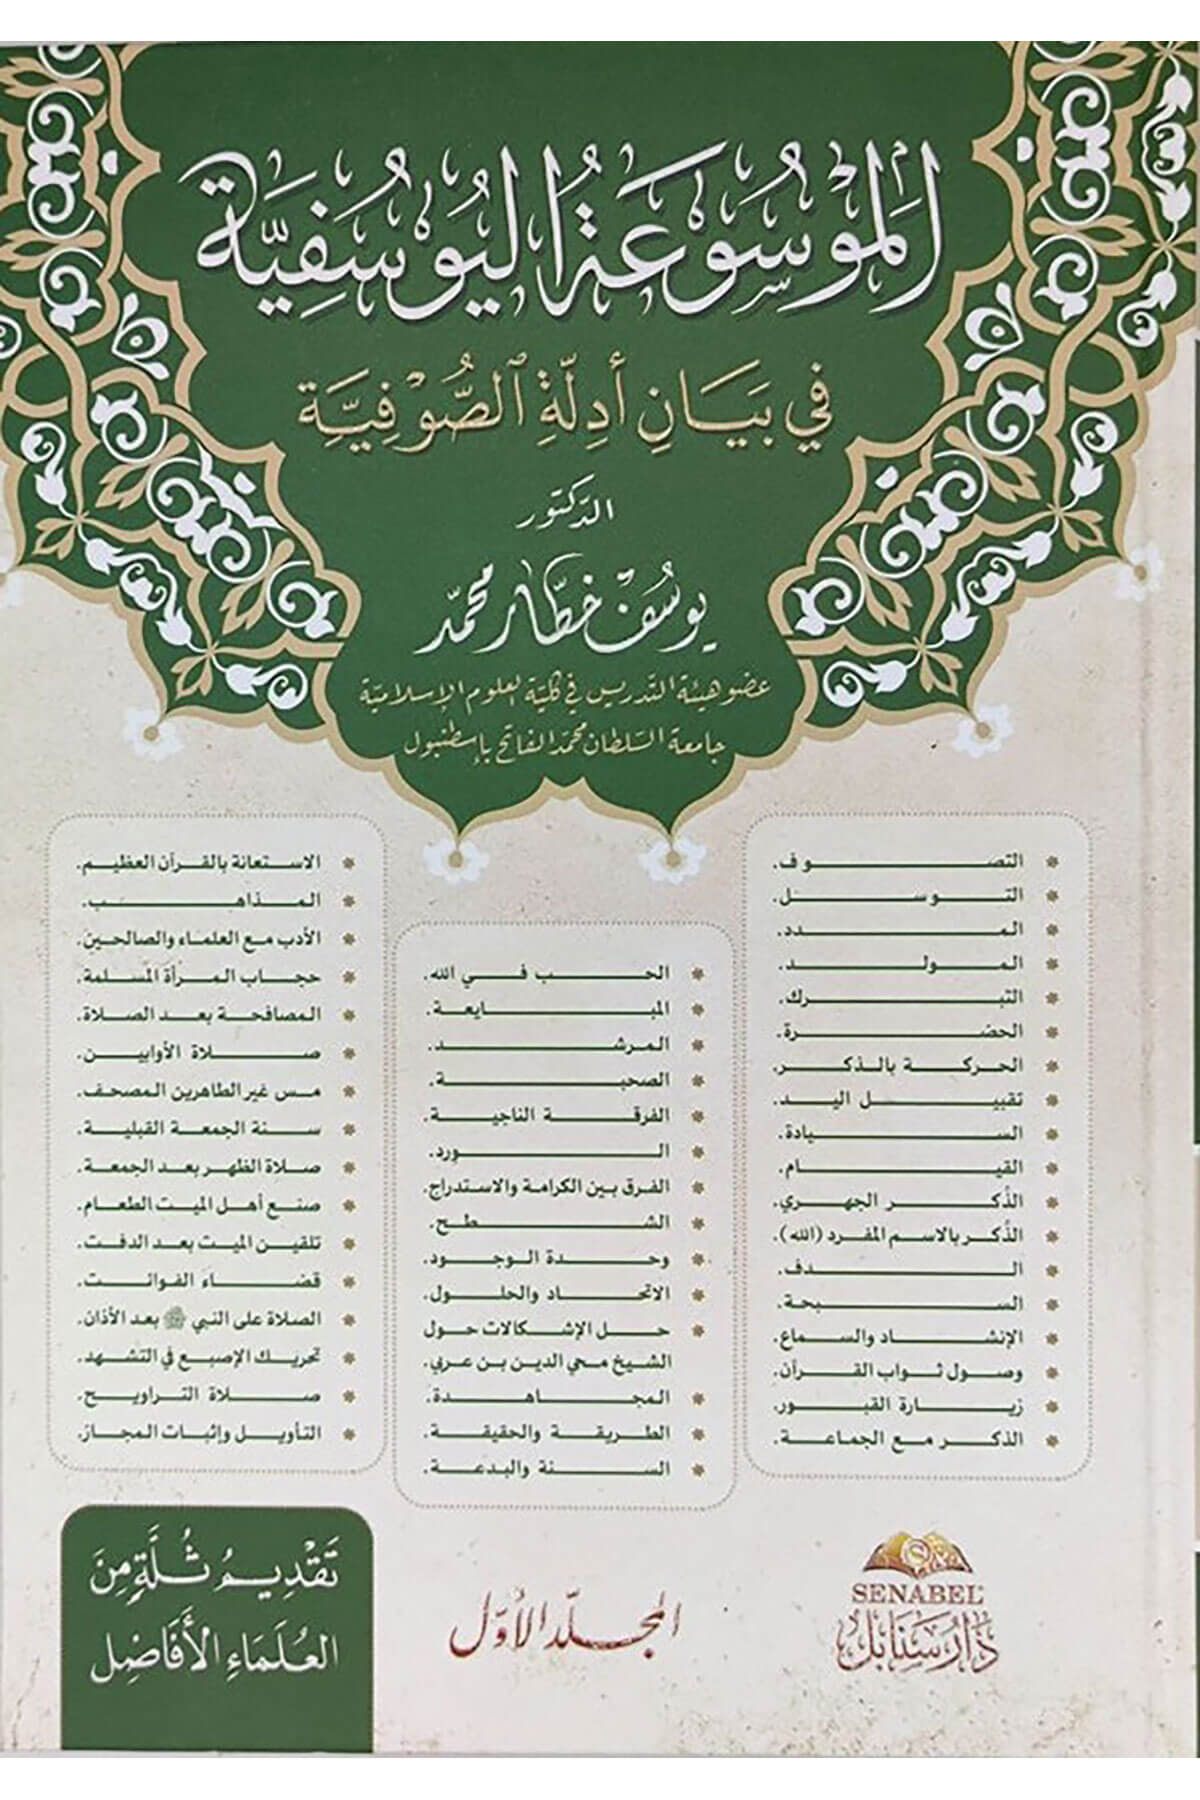 الموسُوعَةُ اليُوسُفِيَّة
في بَيَانِ أدِلّةِ الصُّوْفِيَّةِ
الدكتور
يوسُف خطّار محمّد
عضو هيئة التدريس في كلية العلوم الإسلامية
جامعة السلطان محمد الفاتح بإسطنبول
* التصوف.
* التوسل.
* المدد.
* المولد.
* التبرك.
* الحضرة.
* الحركة بالذكر.
* تقبيل اليد.
* السيادة.
* القيام.
* الذكر الجهري.
* الذكر بالاسم المفرد (الله).
* الدف.
* السبحة.
* الإنشاد والسماع.
* وصول ثواب القرآن.
* زيارة القبور.
* الذكر مع الجماعة.
* الحب في الله.
* المبايعة.
* المرشد.
* الصحبة.
* الفرقة الناجية.
* الورد.
* الفرق بين الكرامة والاستدراج.
* الشطح.
* وحدة الوجود.
* الاتحاد والحلول.
* حل الإشكالات حول
الشيخ محي الدين بن عربي.
* المجاهدة.
* الطريقة والحقيقة.
* السنة والبدعة.
* الاستعانة بالقرآن العظيم.
* المذاهب.
* الأدب مع العلماء والصالحين.
* حجاب المرأة المسلمة.
* المصافحة بعد الصلاة.
* صلاة الأوابين.
* مس غير الطاهرين المصحف.
* سنة الجمعة القبلية.
* صلاة الظهر بعد الجمعة.
* صنع أهل الميت الطعام.
* تلقين الميت بعد الدفن.
* قضاء الفوائت.
* الصلاة على النبي ﷺ بعد الأذان.
* تحريك الإصبع في التشهد.
* صلاة التراويح.
* التأويل وإثبات المجاز.
SENABEL
دار سنابل
المجلد الأول
تَقْدِيمُ ثُلَّةٍ مِنَ
العُلَمَاءِ الأَفَاضِل